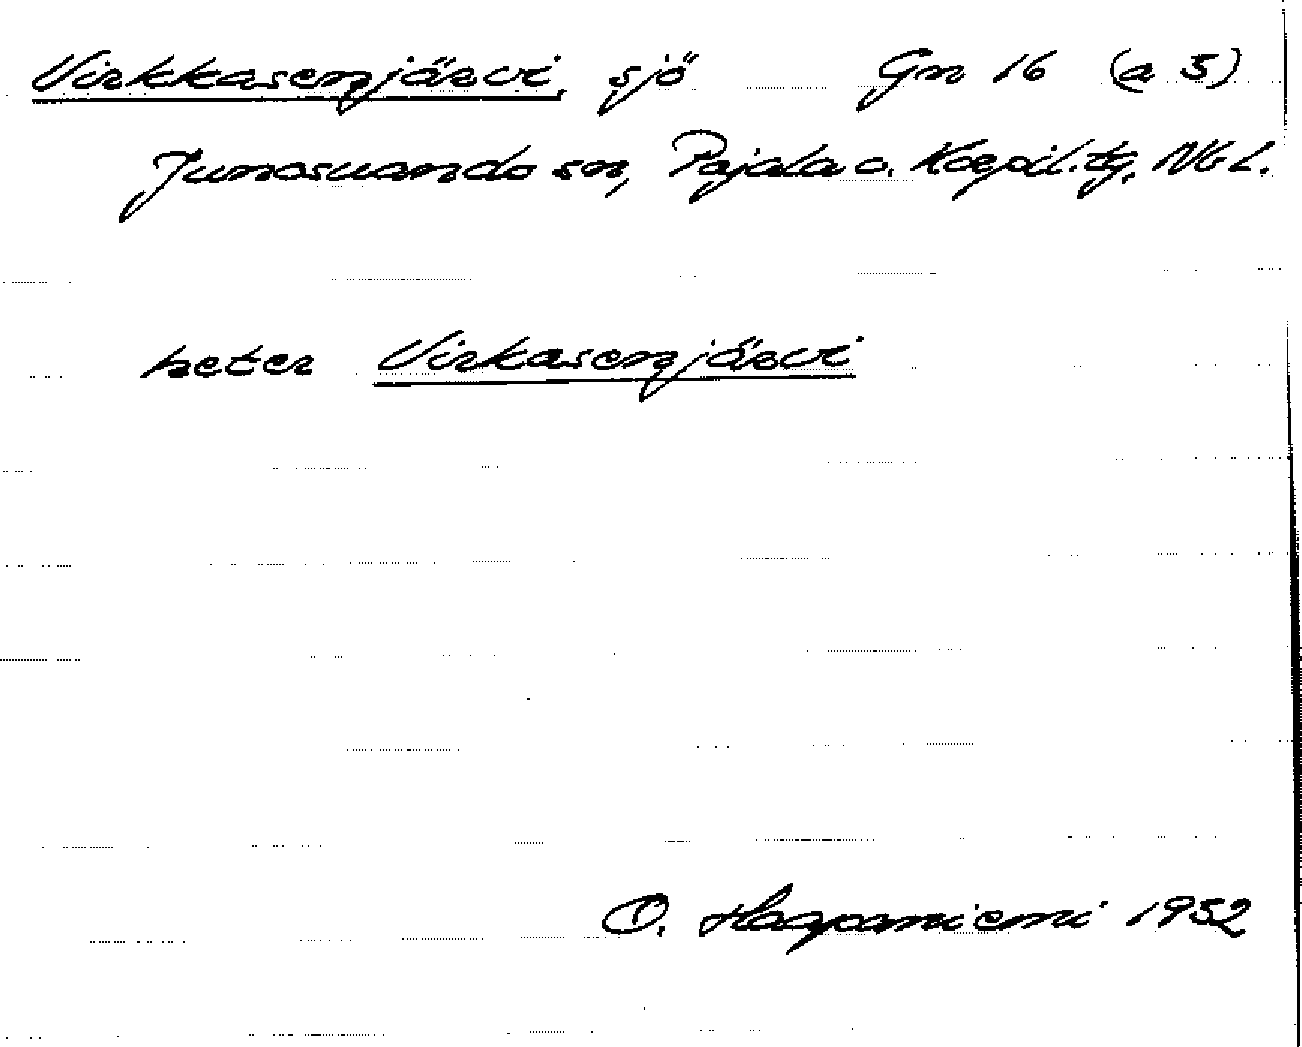 Virkkasenjärvi, sjö Gn 16 (a 5)
Junosuando sn, Pajala o. Korpil. tg, Nb l.
heter Virkasenjärvi
O. Haapaniemi 1952